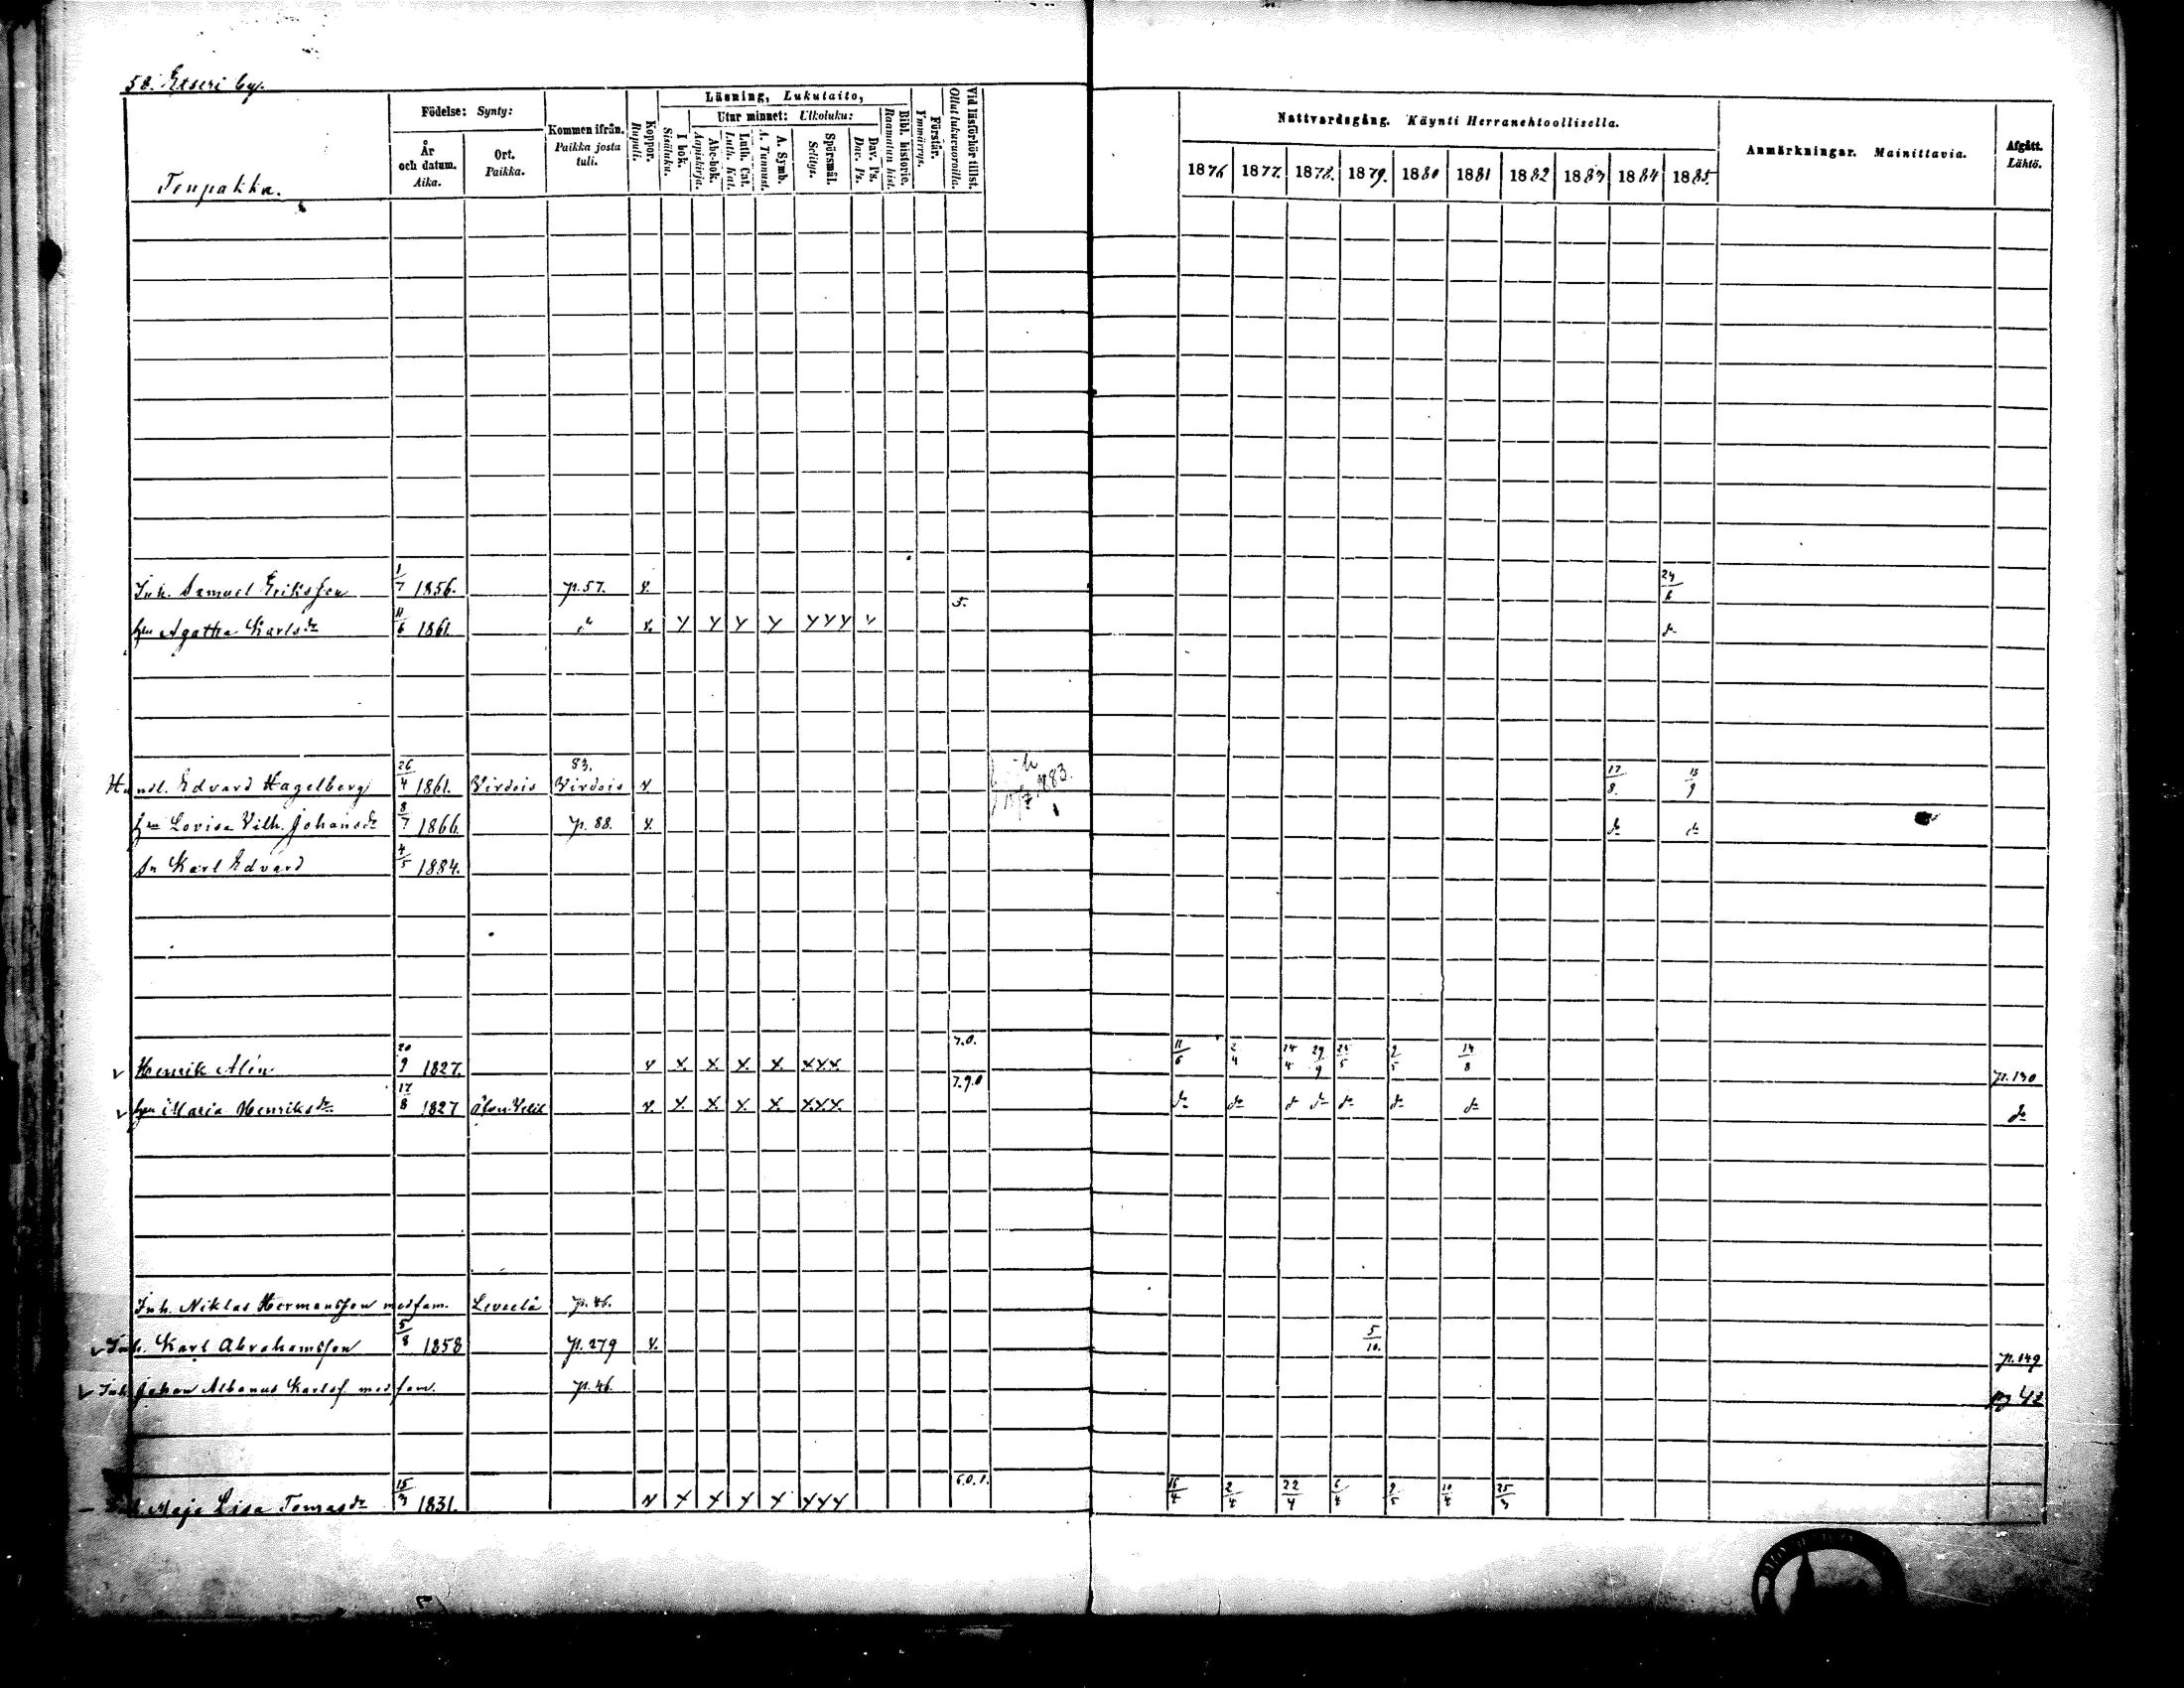 58. Etseri by.
Födelse: Synty:
Kommen ifrån. Paikka josta tuli.
Koppor. Rupuli.
Läsning, Lukutaito,
Utur minnet: Ulkoluku:
I bok. Sisäluku.
Abc-bok. Aapiskirja.
Luth. Cat. Luth. Kat.
A. Symb. A. Tunnust.
Spörsmål. Selitys.
Dav. Ps. Dav. Ps.
Bibl. historie. Raamatun hist.
Förstår. Ymmärrys.
Vid läsförhör tillst. Ollut lukuvuoroilla.
Nattvardsgång. Käynti Herranehtoollisella.
Anmärkningar. Mainittavia.
Afgått. Lähtö.
År och datum. Aika.
Ort. Paikka.
1876 1877. 1878. 1879. 1880 1881 1882 1883 1884 1885.
Inh. Samuel Eriksson 1/7 1856. p. 57. v. 24/6
5.
hu Agatha Karlsdr 11/6 1861. " v. Y Y Y Y YYY Y do
Handl. Edvard Hagelberg 26/4 1861. Virdois 83. Virdois v 1883. 17/8. 13/9
hu Lovisa Vilh. Johansdr 8/7 1866. p. 88. v. do do
sn Karl Edvard 4/5 1884.
v Henrik Alén 20/9 1827. v X X X X XXX 7.0. 11/6 2/4 14/4 29/9 25/5 2/5 14/8 p. 130
v hu Maria Henriksdr 17/8 1827 v. X X X X XXX 7.9.0 do do do do do do do do
Inh. Niklas Hermansson med fam. Leveelä p. 46.
v Inh. Karl Abrahamsson 5/8 1858 p. 279 v. 5/10. p. 149
v Inh. Johan Albanus Karlss. med fam. p. 46. pg 42
Inh. Maja Lisa Tomasdr 15/3 1831. v X X X X YYY 6.0.1. 16/4 2/4 22/4 6/4 2/5 10/4 25/3